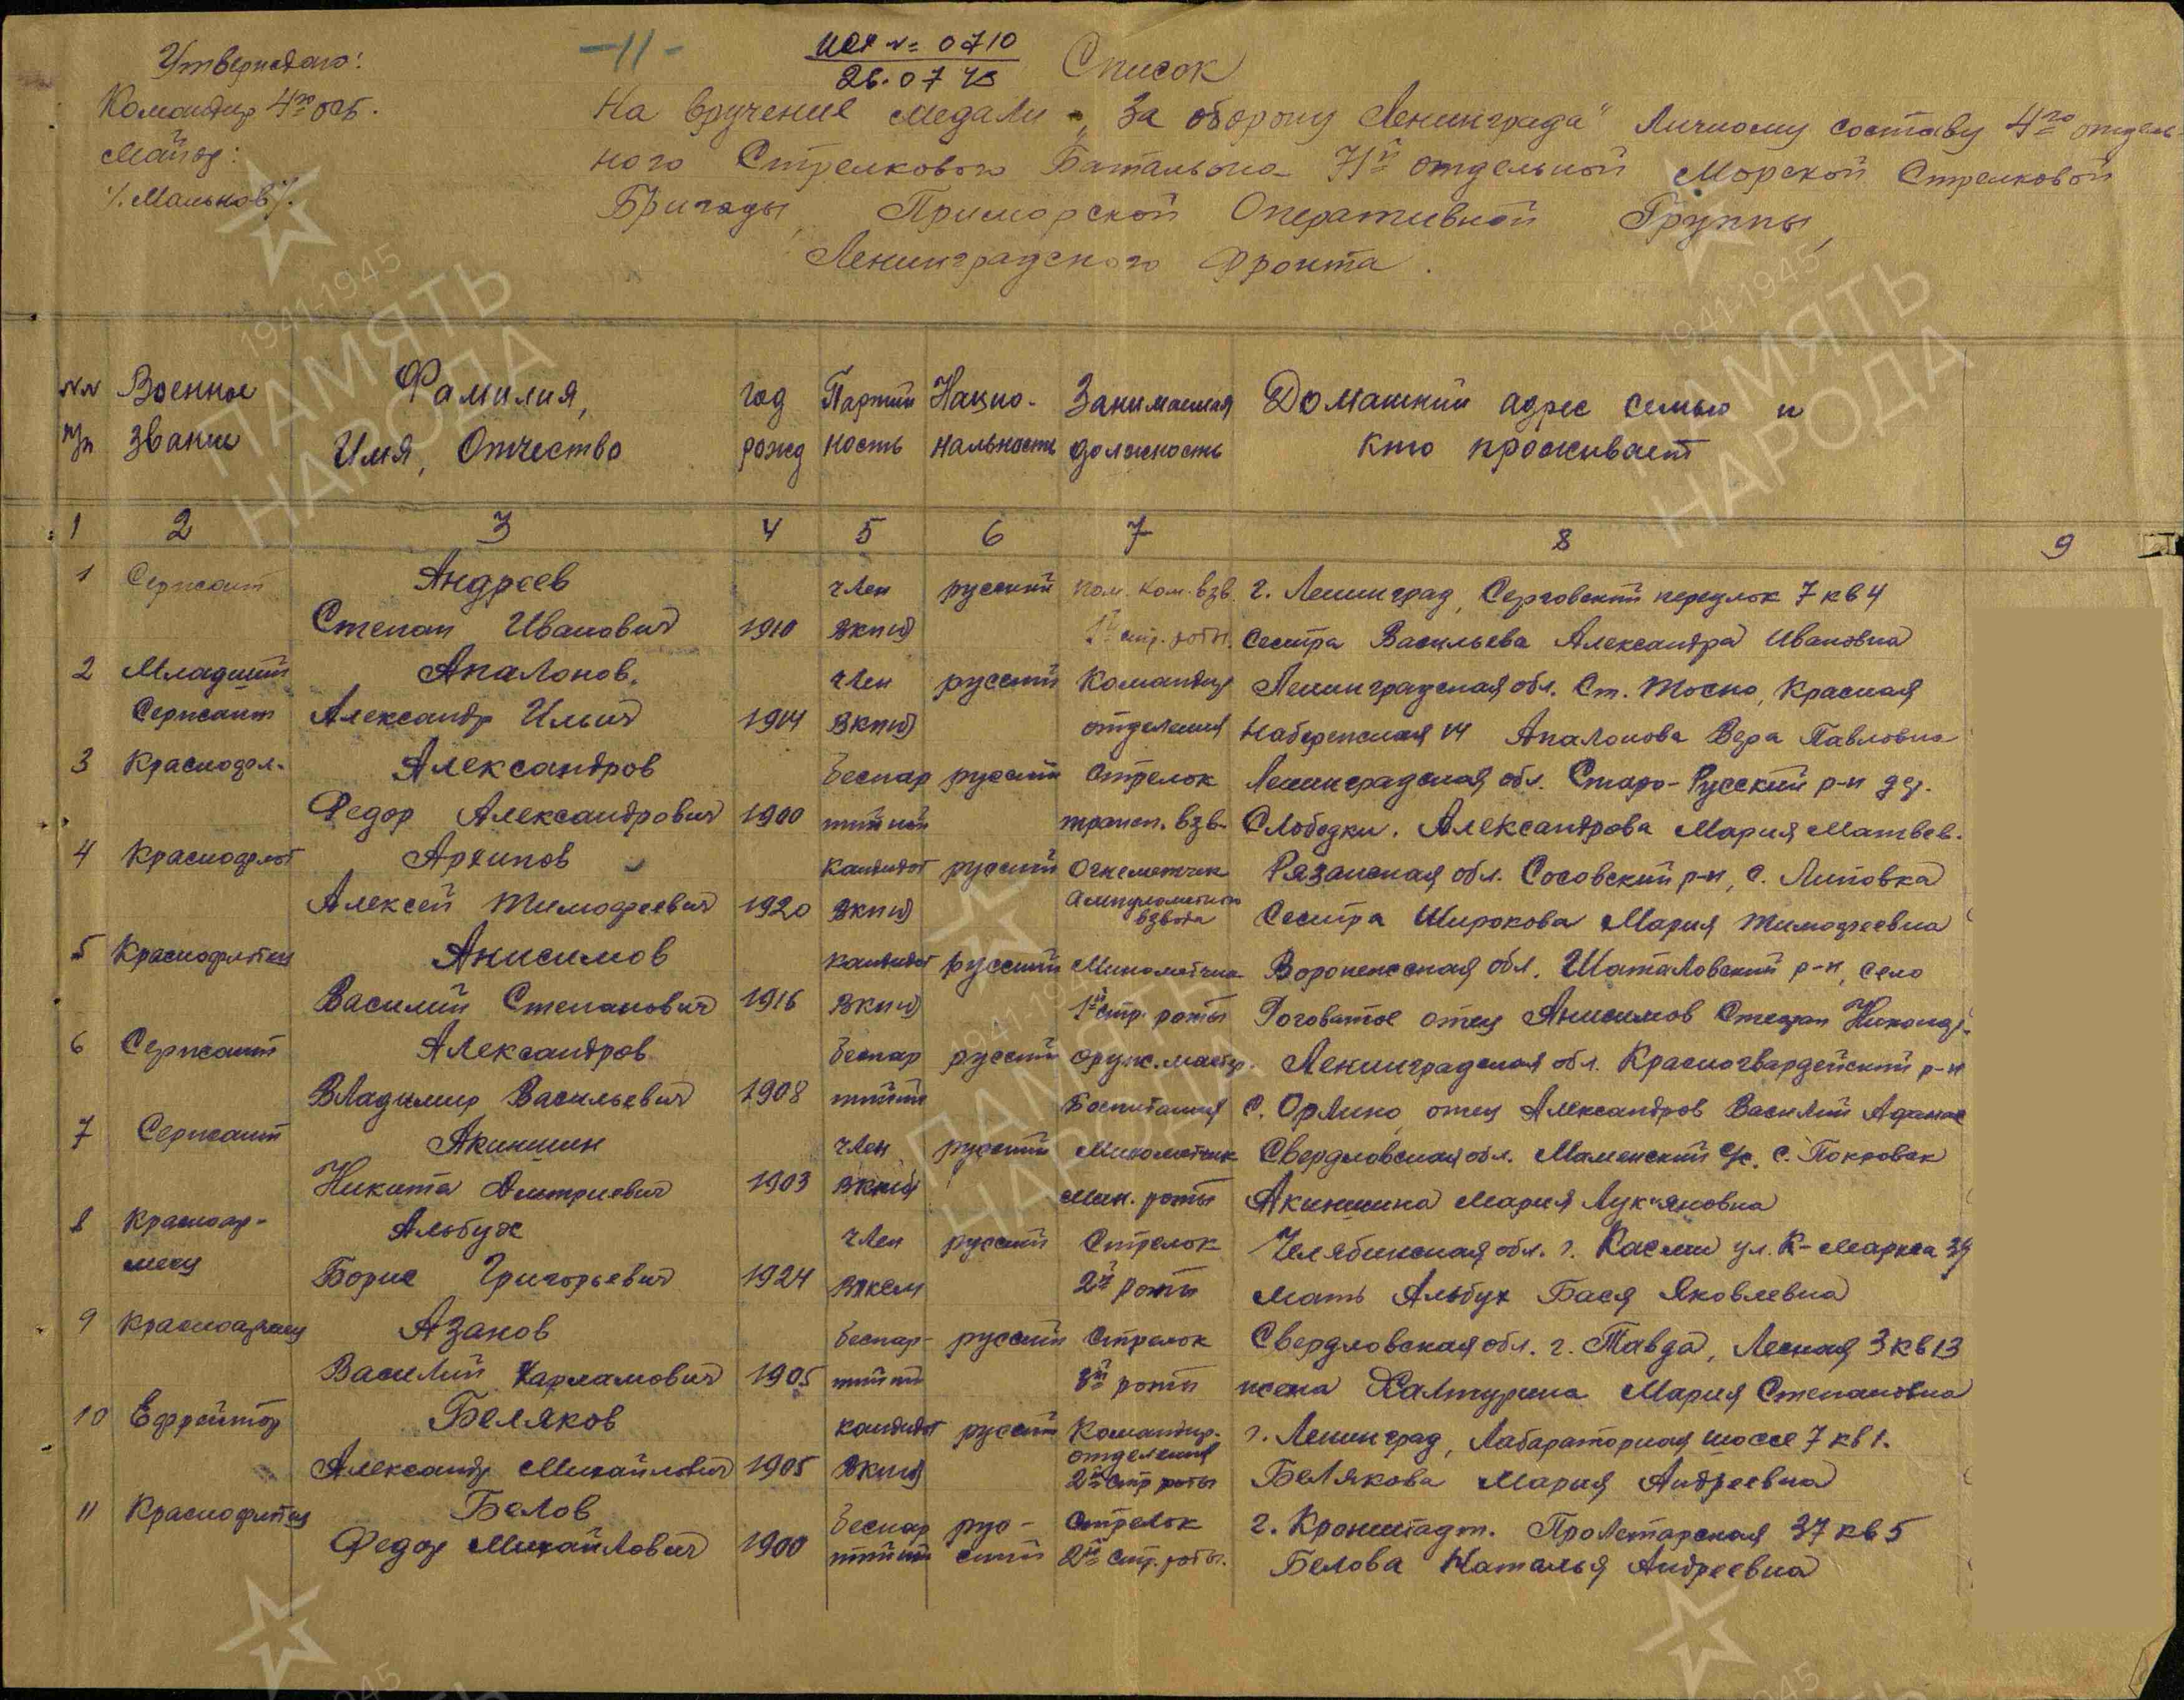 Утверждаю:
Командир 4го осб.
Майор:
/. Мальков /.
-11-
Исх № 0710
26.07 43
Список
На вручение медали "За оборону Ленинграда" Личному составу 4го отдель
ного Стрелкового Батальона 71й отдельной Морской Стрелковой
Бригады, Приморской Оперативной Группы,
Ленинградского Фронта.
№№ пп
Военное звание
Фамилия, Имя, Отчество
год рожд
Партий ность
Нацио- нальность
Занимаемая должность
Домашний адрес семьи и кто проживает
1 2 3 4 5 6 7 8 9
1 Сержант Андреев член русский пом. ком. взв. г. Ленинград, Серговский переулок 7 кв 4
Степан Иванович 1910 ВКП(б) 1й стр. роты. сестра Васильева Александра Ивановна
2 Младший Апалонов. член русский Командир Ленинградская обл. Ст. Тосно, Красная
Сержант Александр Ильич 1914 ВКП(б) отделения Набережная 14 Апалонова Вера Павловна
3 Краснофл. Александров беспар русский Стрелок Ленинградская обл. Старо-Русский р-н дер.
Федор Александрович 1900 тийный трансп. взв. Слободки. Александрова Мария Матвев.
4 Краснофлот Архипов кандидат русский Огнеметчик Рязанская обл. Сосовский р-н, с. Липовка
Алексей Тимофеевич 1920 ВКП(б) Ампулометного взвода Сестра Широкова Мария Тимофеевна
5 Краснофлотец Анисимов кандидат русский Минометчик Воронежская обл. Шаталовский р-н, село
Василий Степанович 1916 ВКП(б) 1й стр. роты Роговатое отец Анисимов Степан
6 Сержант Александров беспар русский оруж. мастер. Ленинградская обл. Красногвардейский р-н
Владимир Васильевич 1908 тийный с. Орлино, отец Александров Василий
7 Сержант Акиншин член русский Минометчик Свердловская обл. с. Покровак
Никита Дмитриевич 1903 ВКП(б) мин. роты Акиншина Мария Лук"яновна
8 Красноар- Альбух член русский Стрелок Челябинская обл. г. Касли ул. К-Маркса 39
меец Борис Григорьевич 1924 ВЛКСМ 2й роты мать Альбух Бася Яковлевна
9 Красноармеец Азанов беспар- русский Стрелок Свердловская обл. г. Тавда, Лесная 3 кв 13
Василий Харламович 1905 тийный 3й роты жена Халтурина Мария Степановна
10 Ефрейтор Беляков кандидат русский Командир. г. Ленинград, Лабараторная шоссе 7 кв 1.
Александр Михайлович 1905 ВКП(б) отделения 2й стр роты Белякова Мария Андреевна
11 Краснофлотец Белов беспар рус- Стрелок г. Кронштадт. Пролетарская 37 кв 5
Федор Михайлович 1900 тийный ский 2й стр. роты. Белова Наталья Андреевна
1941-1945
ПАМЯТЬ
НАРОДА
1941-1945
ПАМЯТЬ
НАРОДА
1941-1945
ПАМЯТЬ
НАРОДА